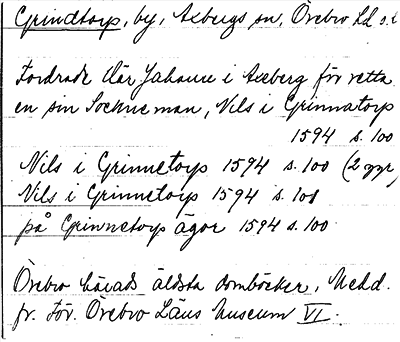 Grindtorp, by, Axbergs sn, Örebro Ld o. l
Fordrade Clär Jahanne i Axeberg för retta
en sin Sockneman, Nils i Grinnatorp
1594 s. 100
Nils i Grinnetorp 1594 s. 100 (2 ggr)
Nils i Grinnetorp 1594 s. 101
på Grinnetorp ägor 1594 s. 100
Örebro härads äldsta domböcker, Medd.
fr. För. Örebro Läns Museum VI.